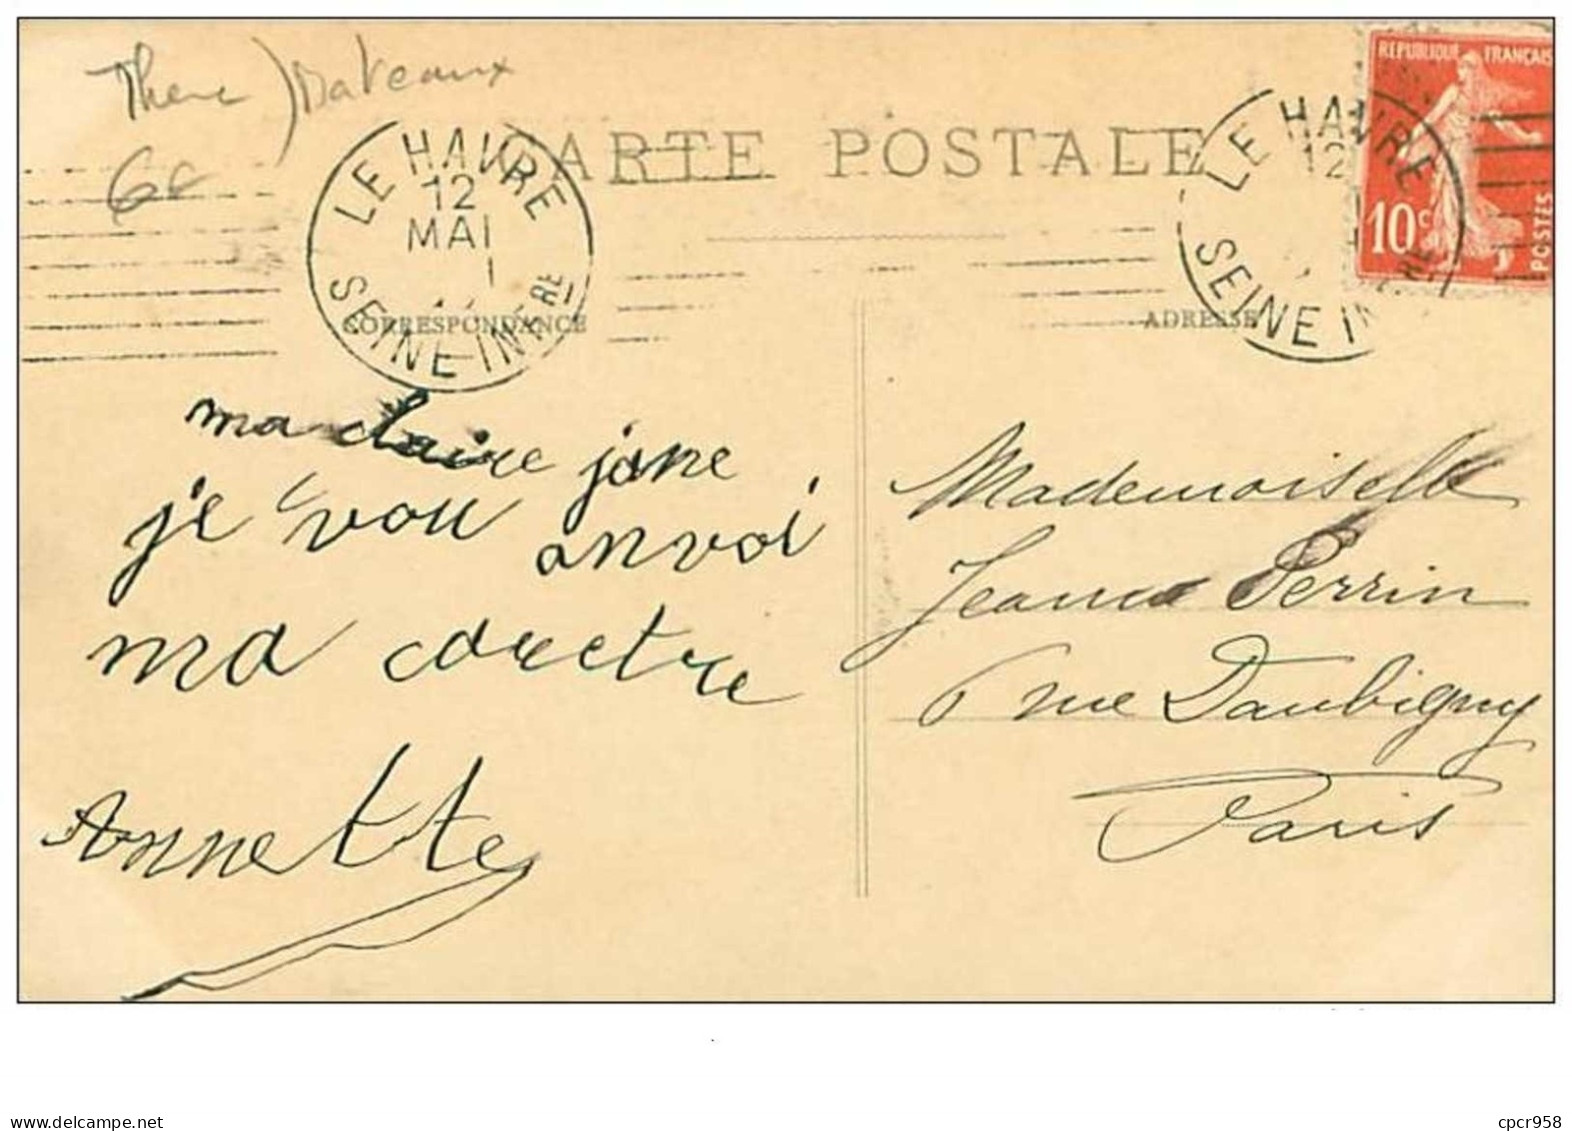 Theme) Bateaux
CARTE POSTALE
LE HAVRE
12
MAI
SEINE INFRE
LE HAVRE
12
SEINE INFRE
REPUBLIQUE FRANÇAISE
10c
POSTES
CORRESPONDANCE
ADRESSE
ma claire jane
je vou anvoi
ma carctre
Annette
Mademoiselle
Jeanne Perrin
6 rue Daubigny
Paris
delcampe.net
cpcr958